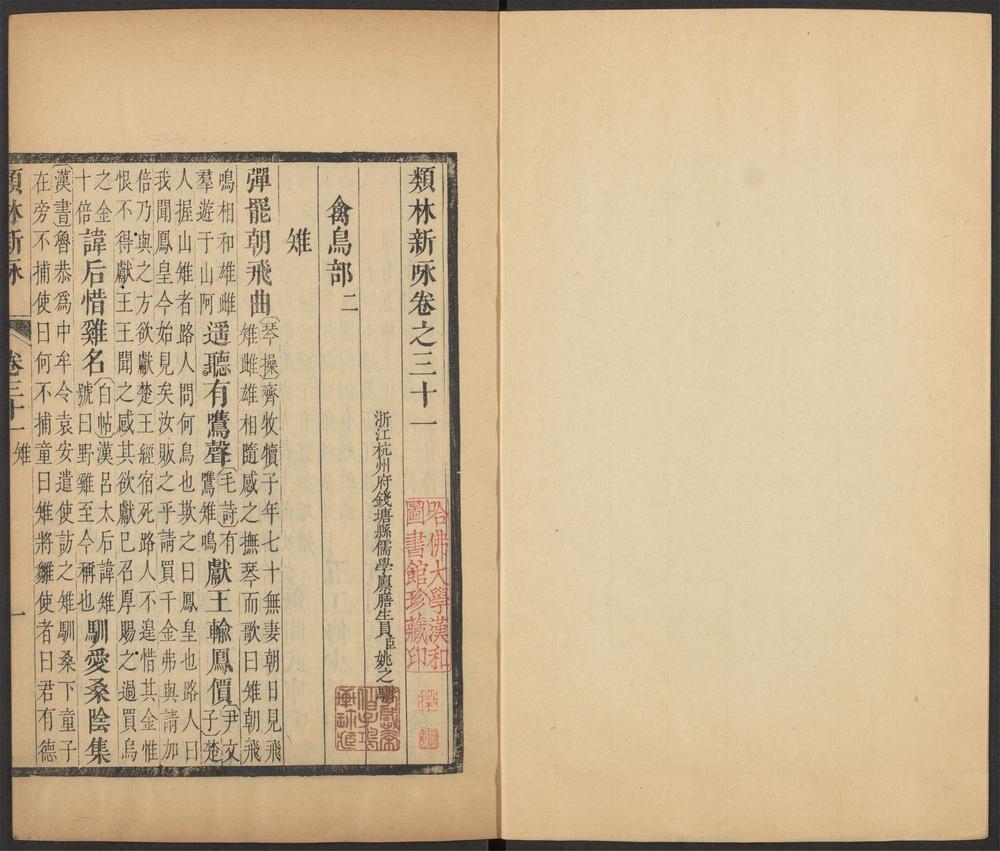 類林新咏卷之三十一
哈佛大學漢和
圖書館珍藏印
浙江杭州府錢塘縣儒學廩膳生員臣姚之駰
禽鳥部二
雉
彈罷朝飛曲 琴操齊牧犢子年七十無妻朝日見飛
雉雌雄相隨感之撫琴而歌曰雉朝飛
鳴相和雄雌
羣遊于山阿 遥聽有鷕聲 毛詩有
鷕雉鳴 獻王輸鳳價 尹文
子楚
人握山雉者路人問何鳥也欺之曰鳳皇也路人曰
我聞鳳皇今始見矣汝販之乎請買千金弗與請加
倍乃與之方欲獻楚王經宿死路人不遑惜其金惟
恨不得獻王王聞之感其欲獻巳召厚賜之過買鳥
之金
十倍 諱后惜雞名 白帖漢呂太后諱雉
號曰野雞至今稱也 馴愛桑陰集
漢書魯恭爲中牟令袁安遣使訪之雉馴桑下童子
在旁不捕使曰何不捕童曰雉將雛使者曰君有德
類林新咏 卷三十一 雉 一